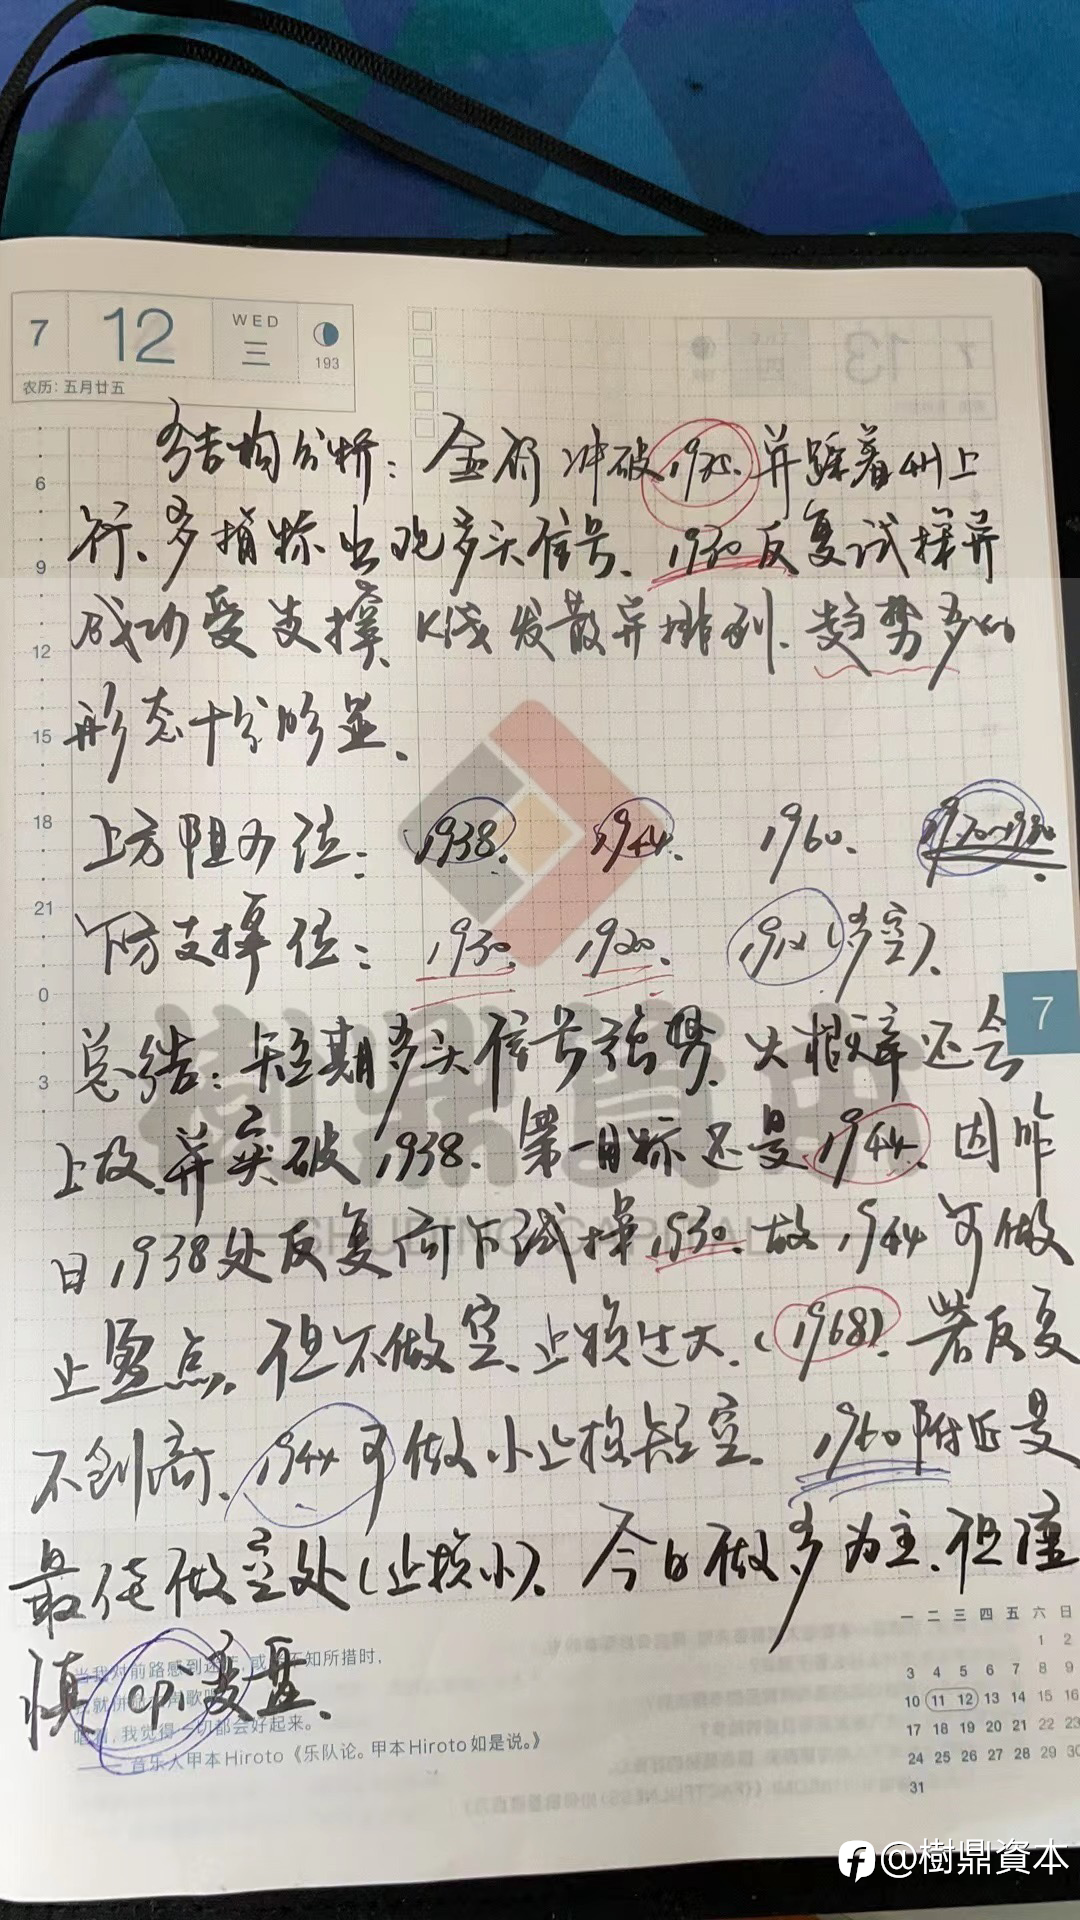 7 12 WED 三 193
农历：五月廿五
结构分析：金价冲破1935.并踩着4H上
行、多指标出现多头信号、1930反复试探并
成功受支撑、K线发散并排列、趋势多的
形态十分明显、
上方阻力位：1938、1944、1960、1970~1980、
下方支撑位：1930、1920、1912（多空）、
总结：短期多头信号强势、大概率还会
上攻、并突破1938、第一目标还是1944、因昨
日1938处反复向下试探1930、故1944可做
止盈点、但不做空、止损过大、（1968）、若反复
不创高、1944可做小止损短空、1960附近是
最佳做空处（止损小）、今日做多为主、但谨
慎cpi变盘、
6
9
12
15
18
21
0
3
7
樹鼎資本
SHUDING CAPITAL
当我对前路感到迷茫，或不知所措时，
唱着，我觉得一切都会好起来。
—— 音乐人甲本Hiroto《乐队论。甲本Hiroto如是说。》
一 二 三 四 五 六 日
1 2
3 4 5 6 7 8 9
10 11 12 13 14 15 16
17 18 19 20 21 22 23
24 25 26 27 28 29 30
31
@樹鼎資本